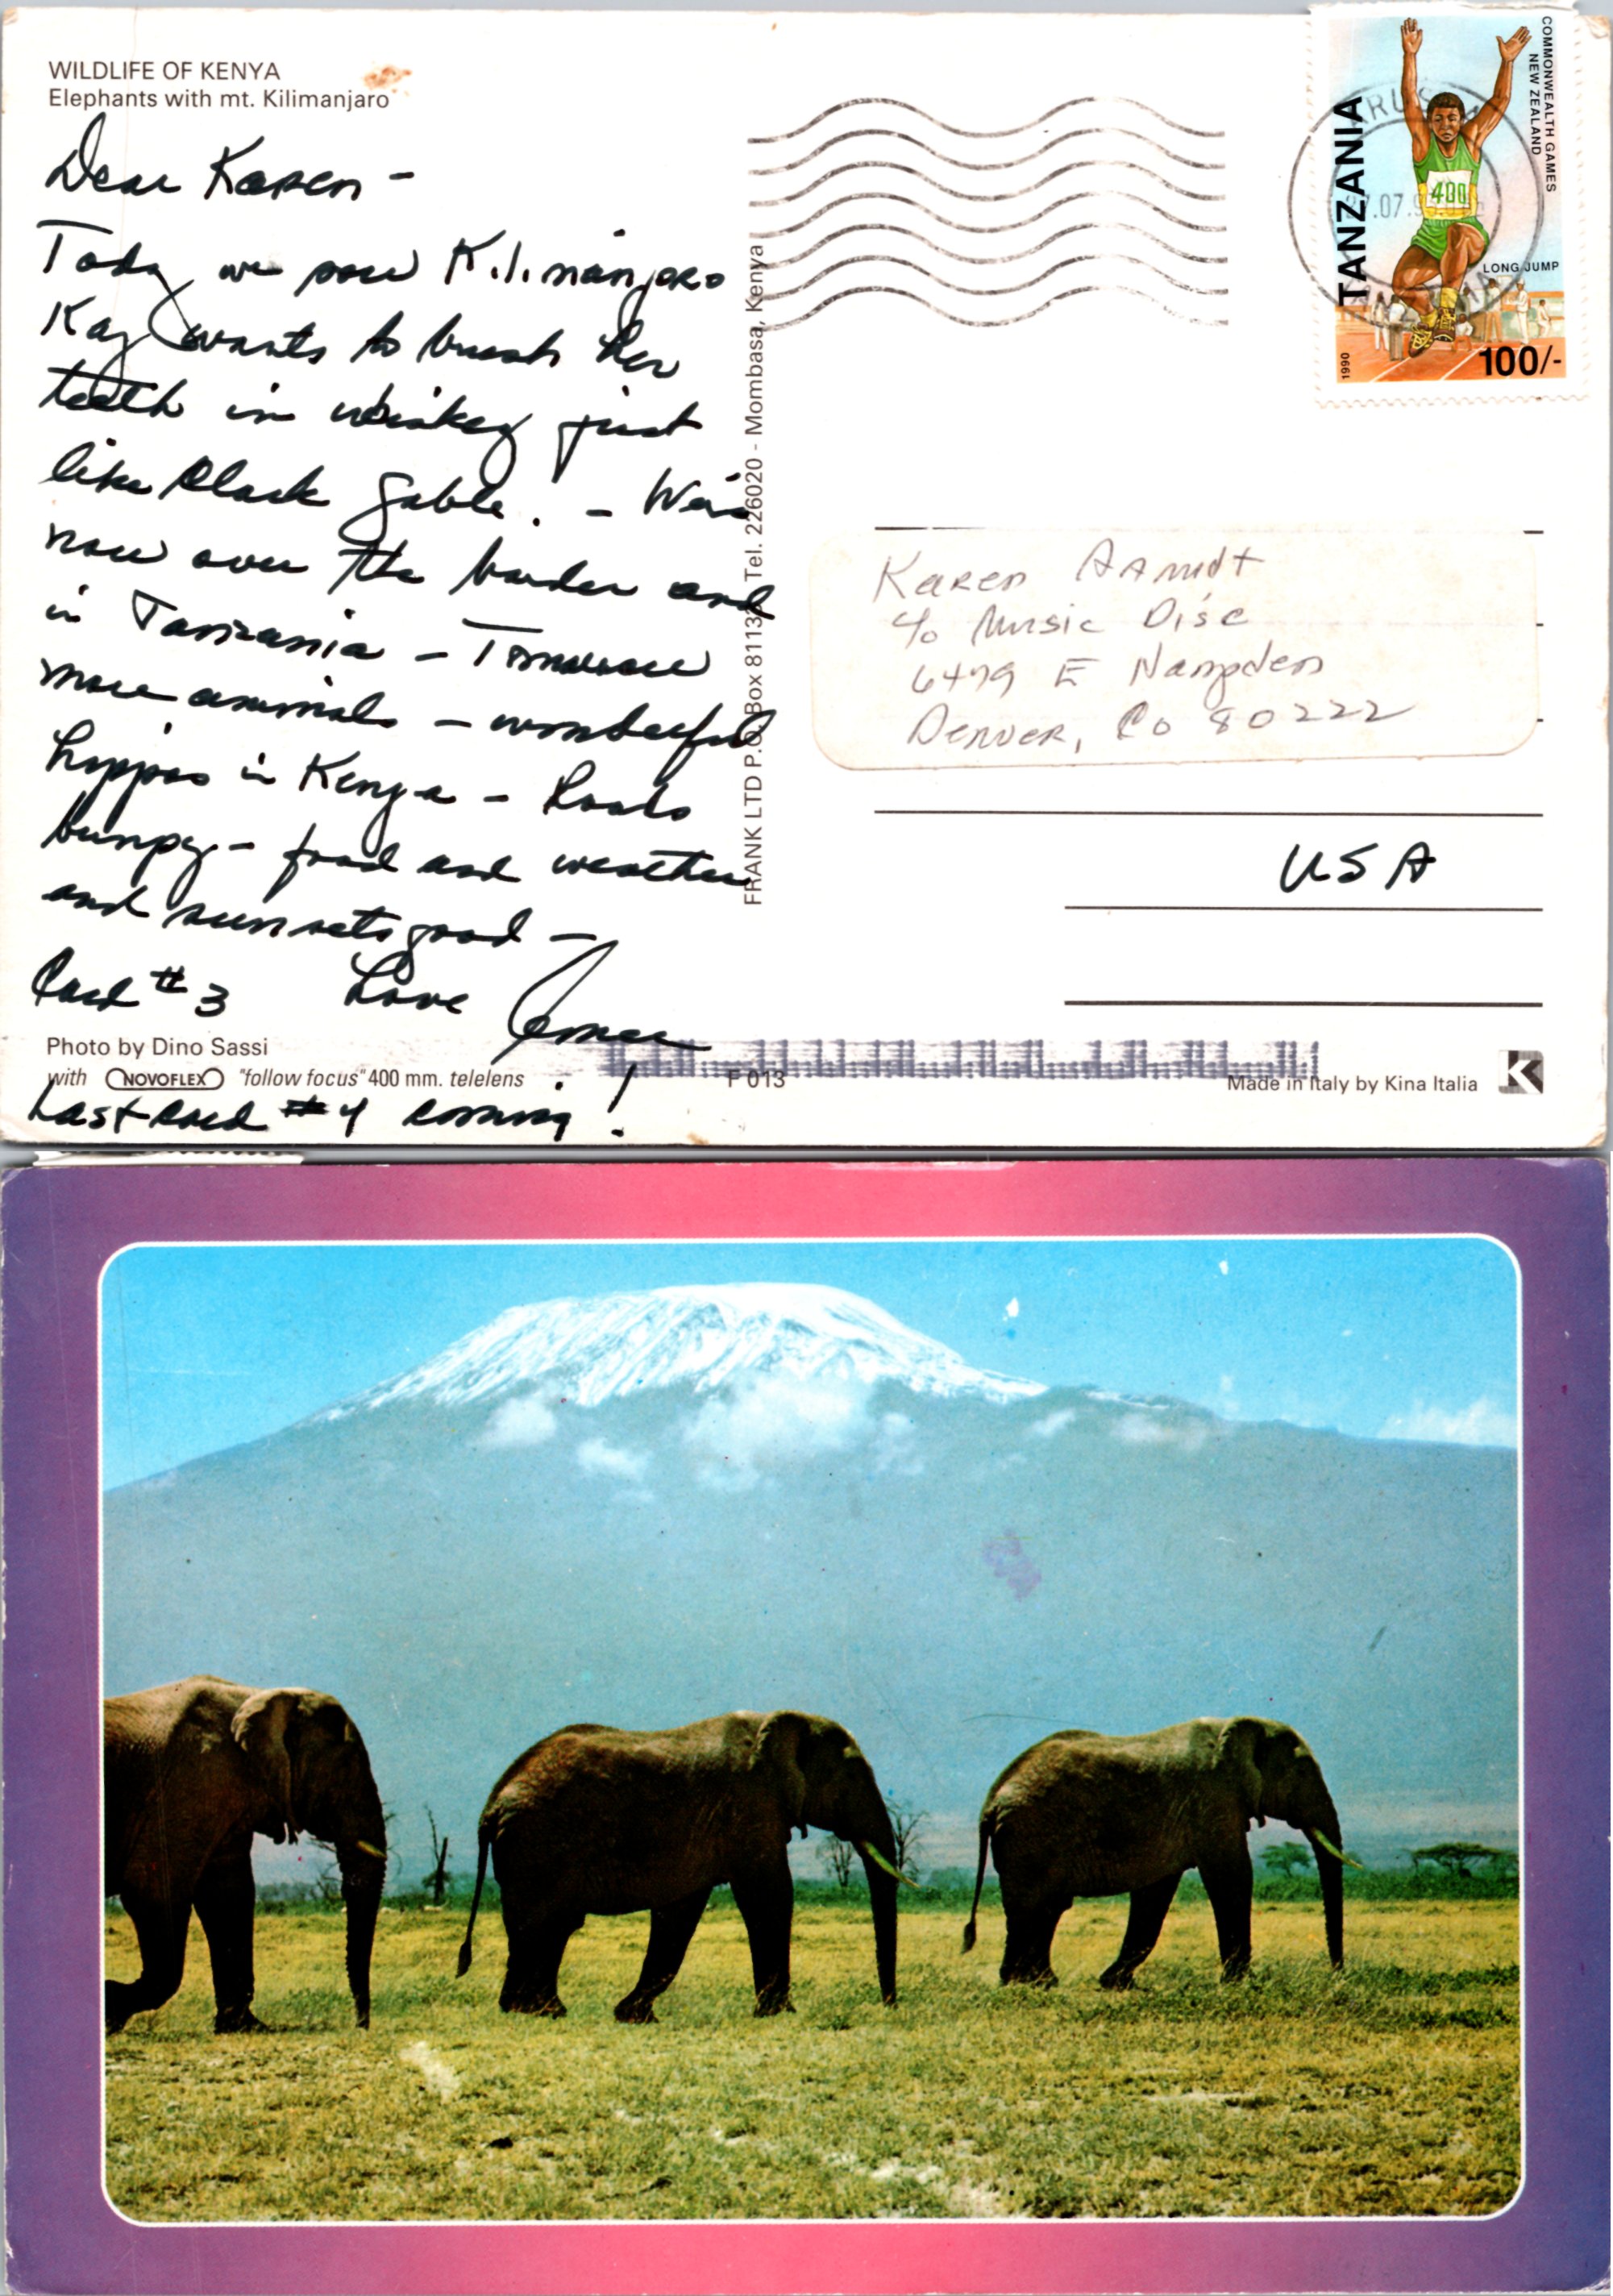 WILDLIFE OF KENYA
Elephants with mt. Kilimanjaro
Dear Karen -
Today we saw Kilimanjaro
Kay wants to brush her
teeth in whiskey just
like Clark Gable. - We're
now over the border and
in Tanzania - Tomorrow
more animals - wonderful
hippos in Kenya - Roads
bumpy - food and weather
and sunsets good -
Card #3 Love
Photo by Dino Sassi
with NOVOFLEX "follow focus" 400 mm. telelens
Last card #4 coming!
FRANK LTD P.O. Box 81132 Tel. 226020 - Mombasa, Kenya
F 013
Made in Italy by Kina Italia
COMMONWEALTH GAMES
NEW ZEALAND
TANZANIA
400
LONG JUMP
1990
100/-
ARUSHA
.07.9
Karen Arndt
c/o Music Disc
6479 E Hampden
Denver, Co 80222
USA